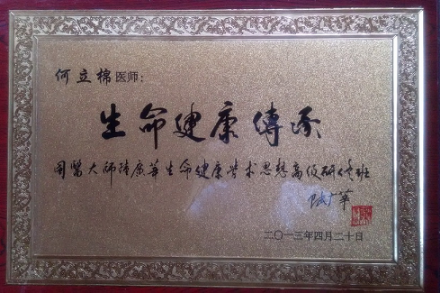 何立棉医师：
生命健康傳承
国醫大师陆广莘生命健康学术思想高级研修班
陆广莘
二〇一三年四月二十日